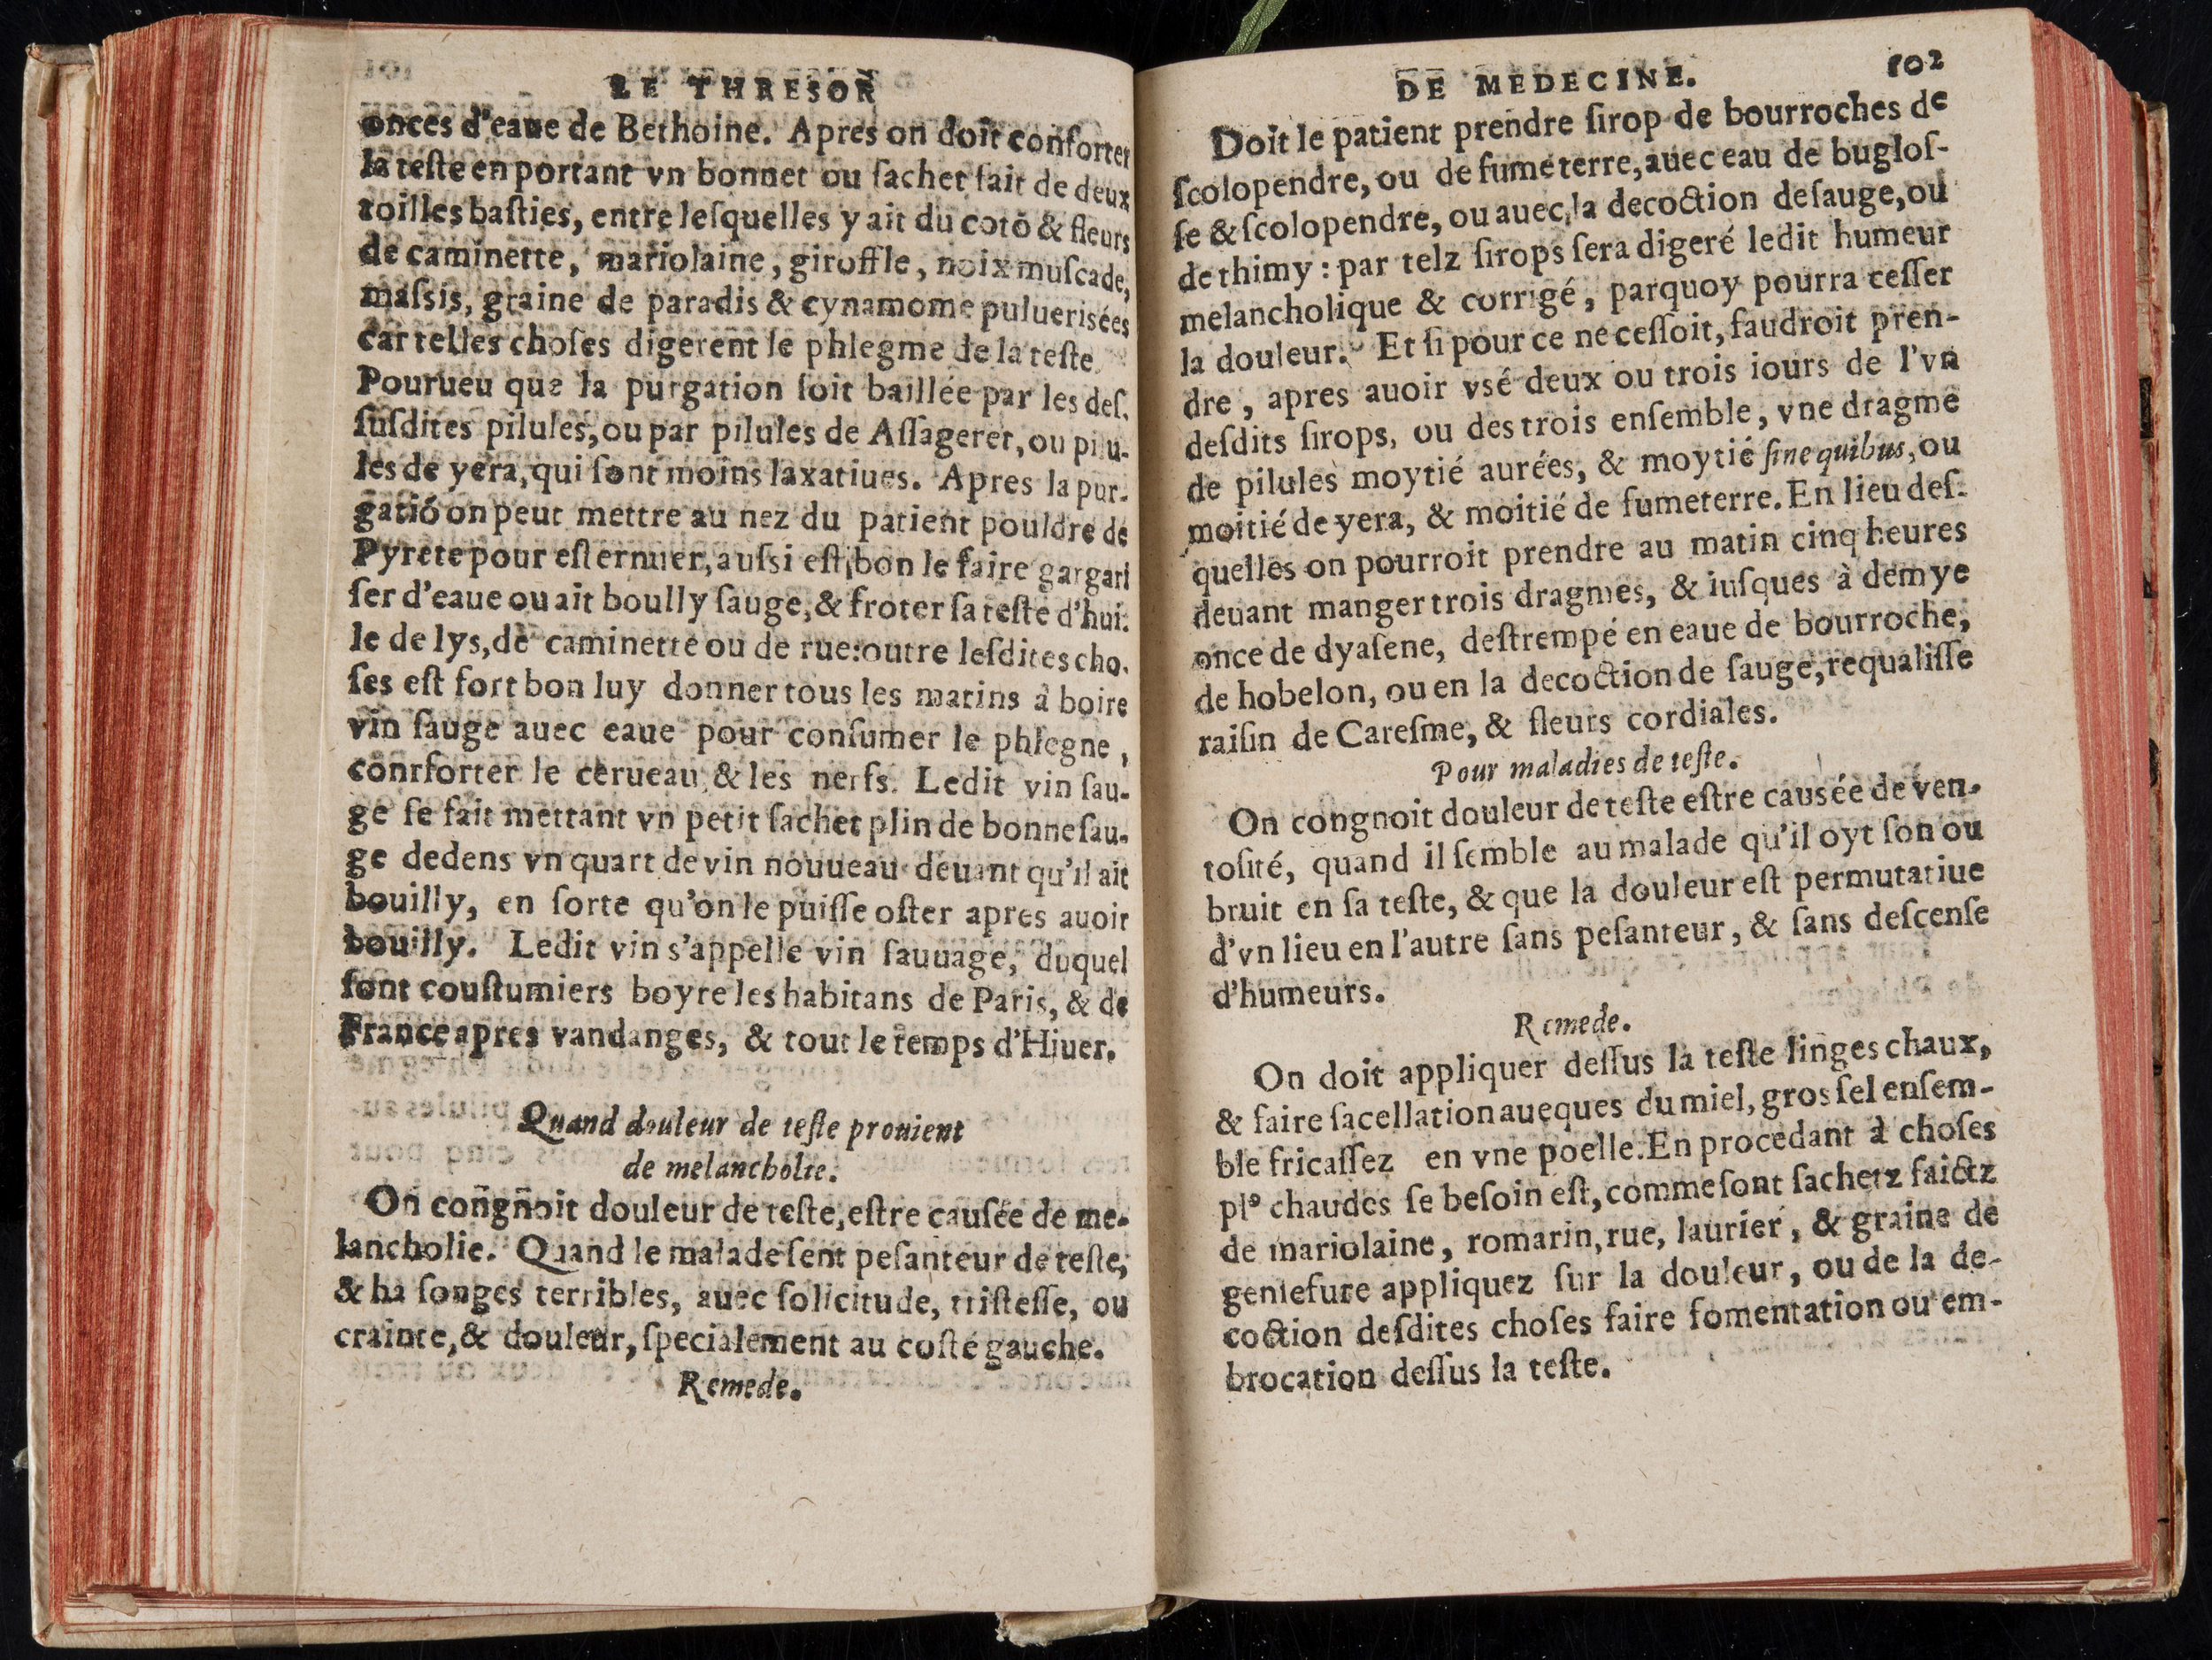 LE THRESOR
onces d'eaue de Bethoine. Apres on doit conforter
la teſte en portant vn bonnet ou ſachet fait de deux
toilles baſties, entre leſquelles y ait du cotō & fleurs
de caminette, mariolaine, giroffle, noix muſcade,
maſsis, graine de paradis & cynamome puluerisées
car telles choſes digerent le phlegme de la teſte
Pourueu que la purgation ſoit baillée par les deſ.
ſuſdites pilules, ou par pilules de Aſſageret, ou pilu-
les de yera, qui ſont moins laxatiues. Apres la pur-
gatiō on peut mettre au nez du patient pouldre de
Pyrete pour eſternuer, auſsi eſt bon le faire gargari
ſer d'eaue ou ait boully ſauge, & froter ſa teſte d'hui.
le de lys, de caminette ou de rue: outre leſdites cho.
ſes eſt fort bon luy donner tous les matins à boire
vin ſauge auec eaue pour conſumer le phlegne,
conrforter le cerueau, & les nerfs. Ledit vin ſau-
ge ſe fait mettant vn petit ſachet plin de bonne ſau-
ge dedens vn quart de vin nouueau deuant qu'il ait
bouilly, en ſorte qu'on le puiſſe oſter apres auoir
bouilly. Ledit vin s'appelle vin ſauuage, duquel
ſont couſtumiers boyre les habitans de Paris, & de
France apres vandanges, & tout le temps d'Hiuer.
Quand douleur de teſte prouient
de melancholie.
On congnoit douleur de teſte, eſtre cauſée de me-
lancholie. Quand le malade ſent peſanteur de teſte,
& ha ſonges terribles, auec ſolicitude, triſteſſe, ou
crainte, & douleur, ſpecialement au coſté gauche.
Remede.
DE MEDECINE. 102
Doit le patient prendre ſirop de bourroches de
ſcolopendre, ou de fumeterre, auec eau de bugloſ-
ſe & ſcolopendre, ou auec la decoction de ſauge, ou
de thimy: par telz ſirops ſera digeré ledit humeur
melancholique & corrigé, parquoy pourra ceſſer
la douleur. Et ſi pour ce ne ceſſoit, faudroit pren-
dre, apres auoir vsé deux ou trois iours de l'vn
deſdits ſirops, ou des trois enſemble, vne dragme
de pilules moytié aurées, & moytié ſine quibus, ou
moitié de yera, & moitié de fumeterre. En lieu deſ-
quelles on pourroit prendre au matin cinq heures
deuant manger trois dragmes, & iuſques à demye
once de dyaſene, deſtrempé en eaue de bourroche,
de hobelon, ou en la decoction de ſauge, requaliſſe
raiſin de Careſme, & fleurs cordiales.
Pour maladies de teſte.
On congnoit douleur de teſte eſtre causée de ven-
toſité, quand il ſemble au malade qu'il oyt ſon ou
bruit en ſa teſte, & que la douleur eſt permutatiue
d'vn lieu en l'autre ſans peſanteur, & ſans deſcenſe
d'humeurs.
Remede.
On doit appliquer deſſus la teſte linges chaux,
& faire ſacellation aueques du miel, gros ſel enſem-
ble fricaſſez en vne poelle. En procedant à choſes
plꝰ chaudes ſe beſoin eſt, comme ſont ſachetz faictz
de mariolaine, romarin, rue, laurier, & graine de
geniefure appliquez ſur la douleur, ou de la de-
coction deſdites choſes faire fomentation ou em-
brocation deſſus la teſte.